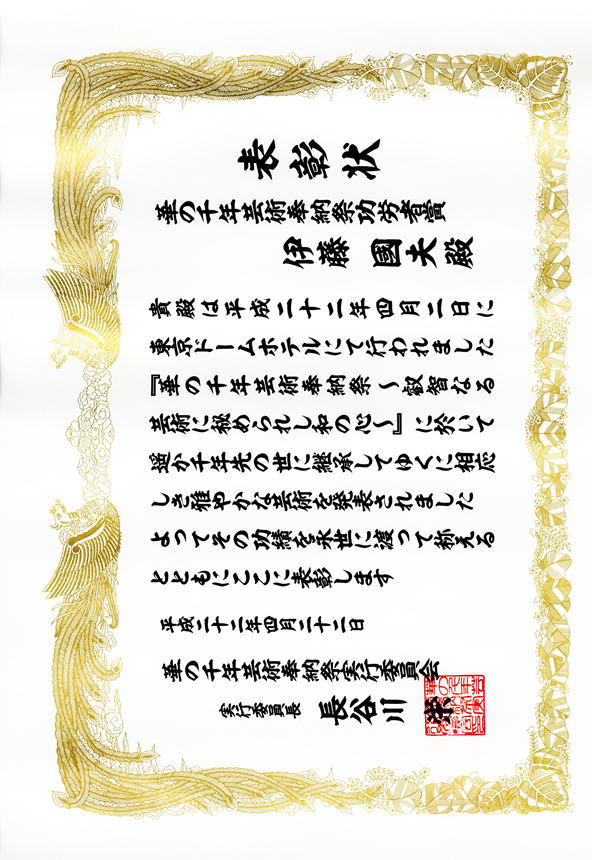 表彰状
華の千年芸術奉納祭功労者賞
伊藤 國夫殿
貴殿は平成二十二年四月二日に
東京ドームホテルにて行われました
『華の千年芸術奉納祭〜叡智なる
芸術に秘められし和の心〜』に於いて
遥か千年先の世に継承してゆくに相応
しき雅やかな芸術を発表されました
よってその功績を永世に渡って称える
とともにここに表彰します
平成二十二年四月二十二日
華の千年芸術奉納祭実行委員会
実行委員長 長谷川 榮